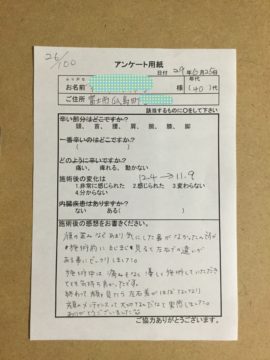 26/100
アンケート用紙
日付 29年6月25日
ふりがな
お名前 様 年代 (40)代
ご住所 富士市
該当するものに○をして下さい
辛い部分はどこですか?
頭、首、腰、肩、腕、膝、脚
一番辛いのはどこですか?
( )
どのように辛いですか?
痛い、痺れる、動かない
施術後の変化は 12.4→11.9
1.非常に感じられた 2.感じられた 3.変わらない
4.分からない
内臓疾患はありますか?
ない ある( )
施術後の感想をお書きください。
顔の歪みなどあまり気にした事がなかったんですが
施術前にまじまじと見ると左右の違いが
ある事にびっくりしました。
施術中は痛みもなく優しく施術していただき
とても気持ち良かったです。
終わって顔を見たら左右差がほぼなくなり
顔のメンテナンスって大切なんだなと実感しました。
ありがとうございました。
ご協力ありがとうございます。